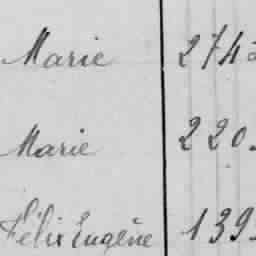 Marie 274
Marie 220
Félix Eugène 139